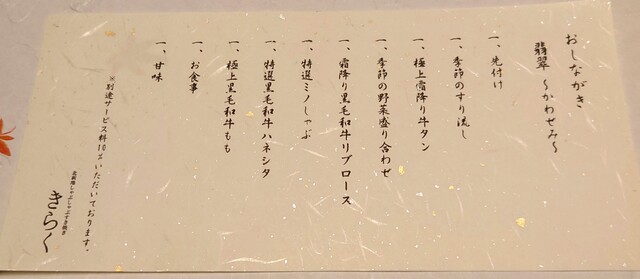 おしながき
翡翠 〜かわせみ〜
一、先付け
一、季節のすり流し
一、極上霜降り牛タン
一、季節の野菜盛り合わせ
一、霜降り黒毛和牛リブロース
一、特選ミノしゃぶ
一、特選黒毛和牛ハネシタ
一、極上黒毛和牛もも
一、お食事
一、甘味
※別途サービス料10%いただいております。
きらく